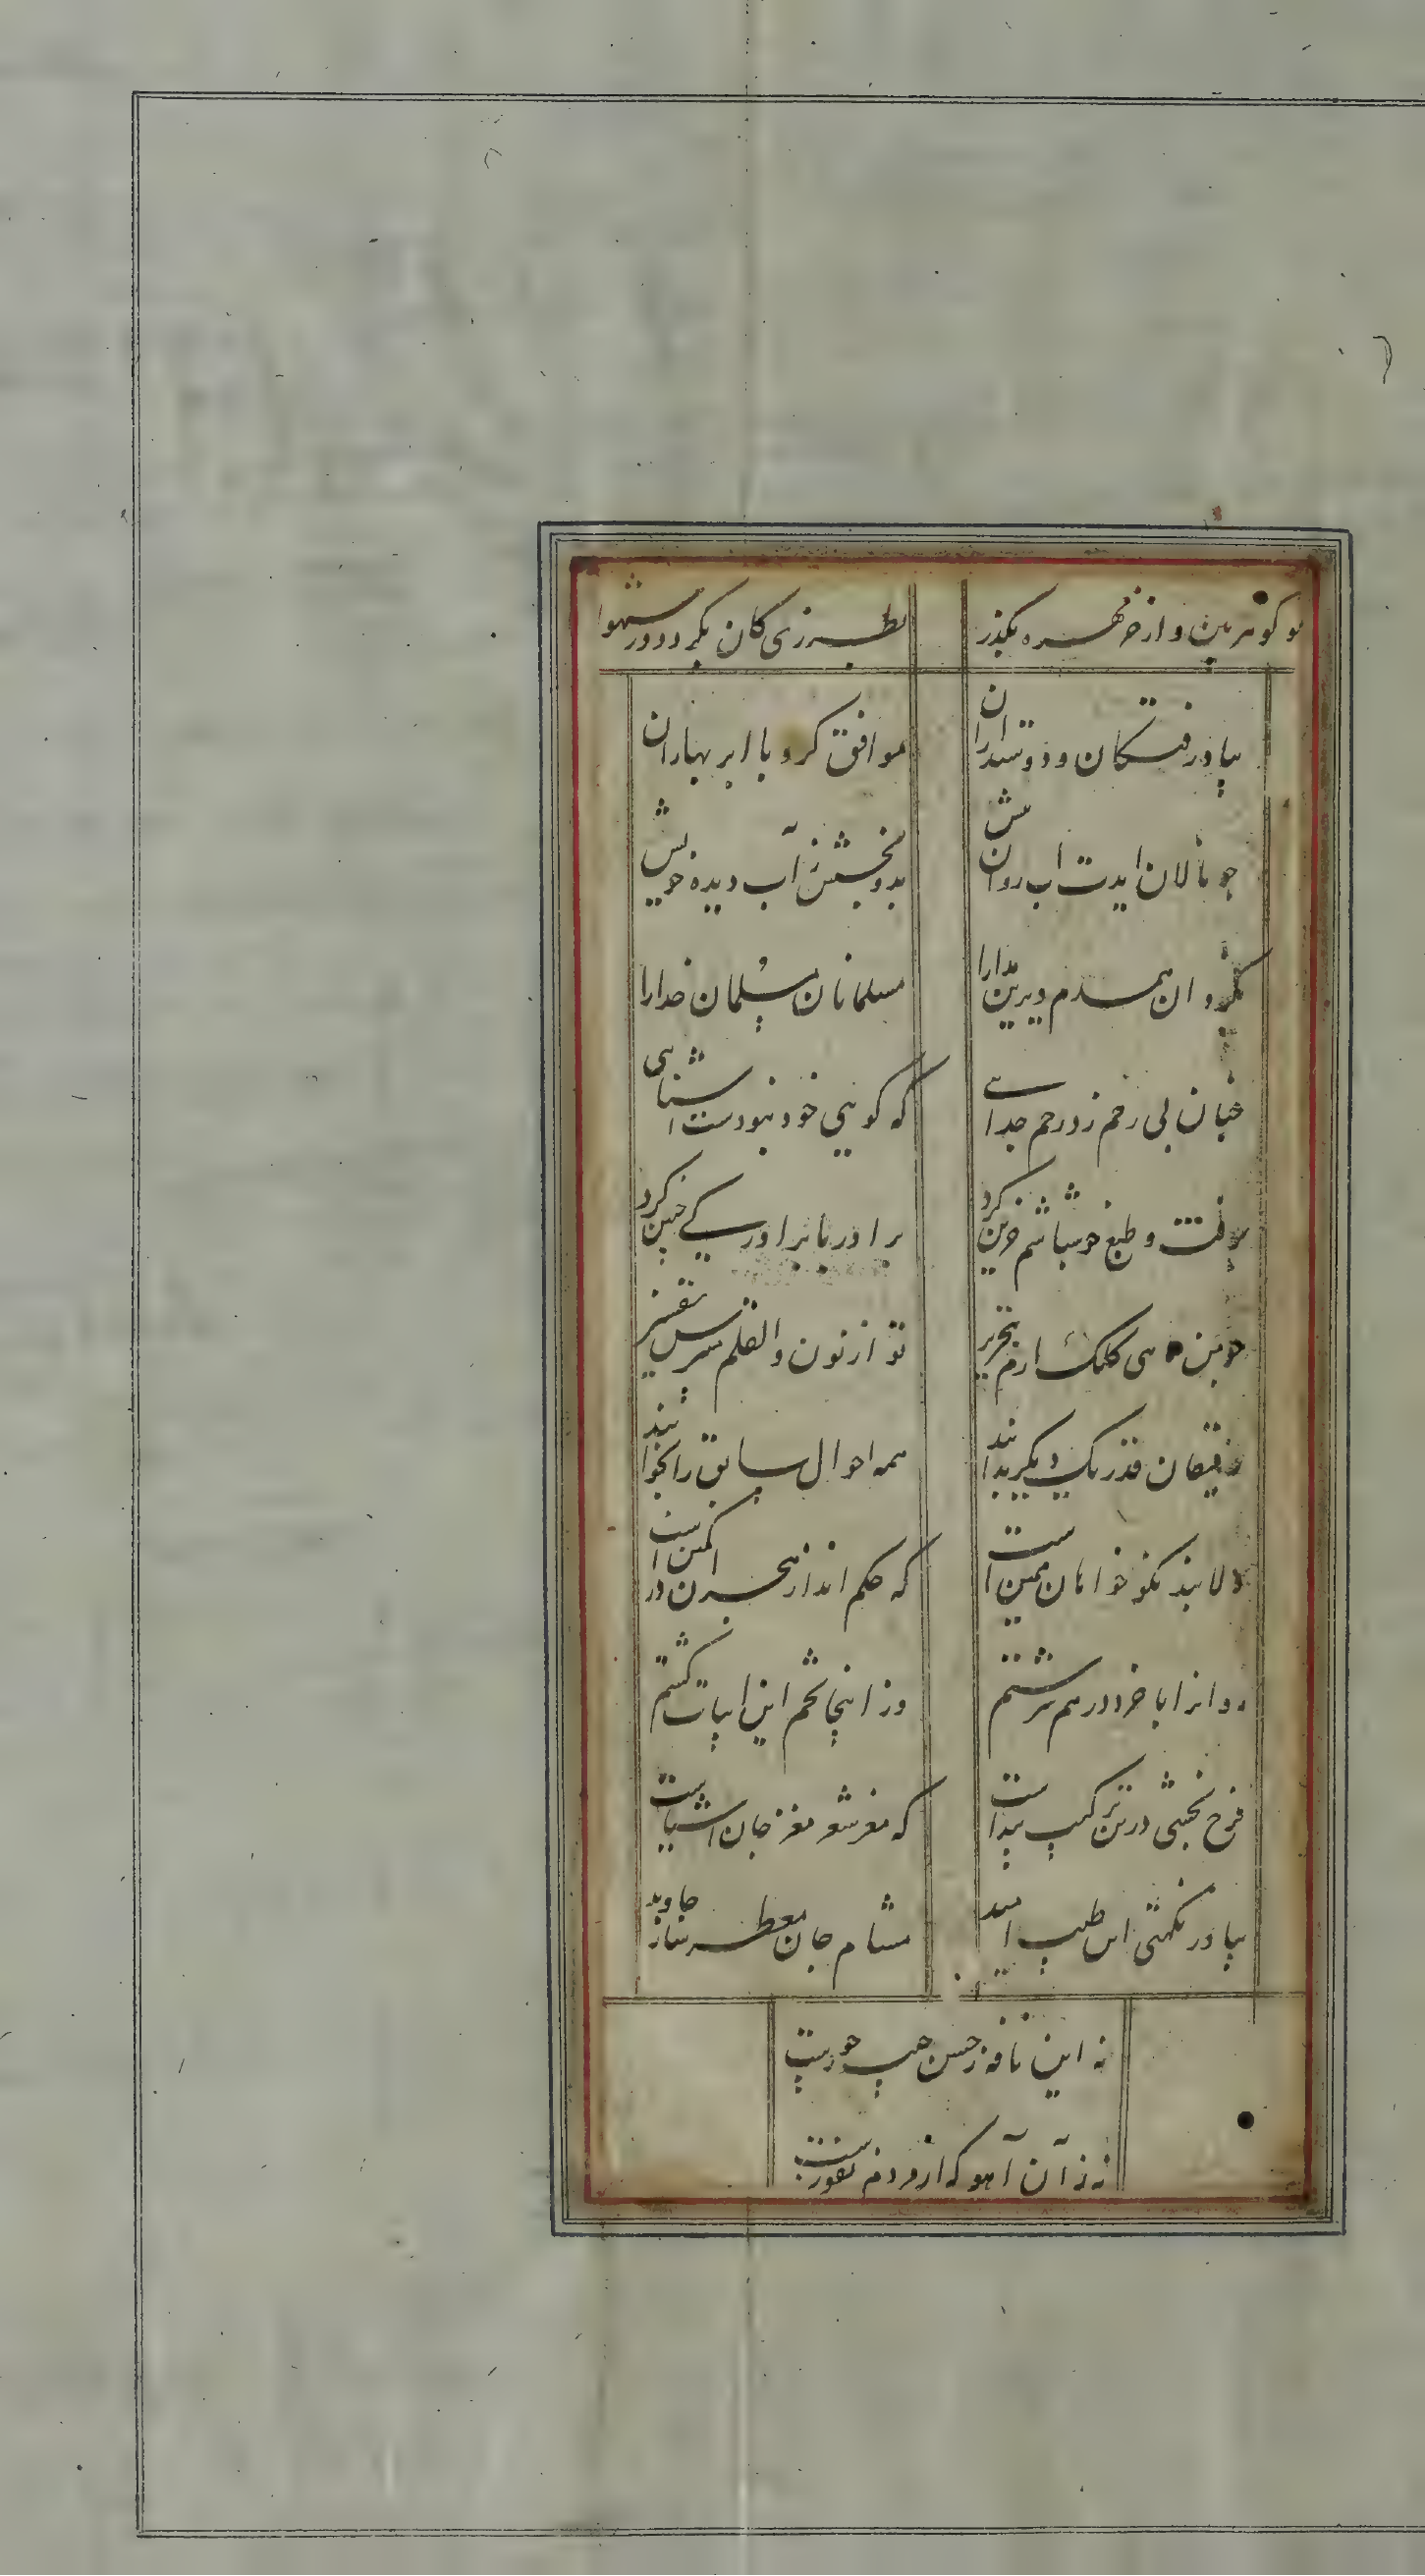 تو کوهر بین و از خر مهره بکذر
بطرزی کان نکردد شهوا در
بیاد رفتکان و دوستداران
موافق کرد با ابر بهاران
چو نالان ایدت اب روان پیش
مدد بخشش ز آب دیده خویش
نکرد ان همدم دیرین مدارا
مسلمانان مسلمان خدارا
چنان بی رحم زد زخم جدائی
که کویی خود نبودست اشنایی
برفت و طبع خوشباشم حزین کرد
برادر با برادر کی چنین کرد
چو من ماهی کلک ارم بتحریر
تو از نون والقلم میپرس تفسیر
رفیقان قدر یکدیکر بدانند
همه احوال سابق را بخوانند
مقالات نصیحت کو همین است
که حکم انداز هجران در کمین است
روانرا با خرد درهم سرشتم
وز انجا تخم این ابیات کشتم
فرح بخشی درین ترکیب پیداست
که مغز شعر مغز جان اشیاست
بیا وز نکهت این طیب امید
مشام جان معطر ساز جاوید
نه این نافه ز چین جیب حورست
نه زآن آهو که از مردم نفورست